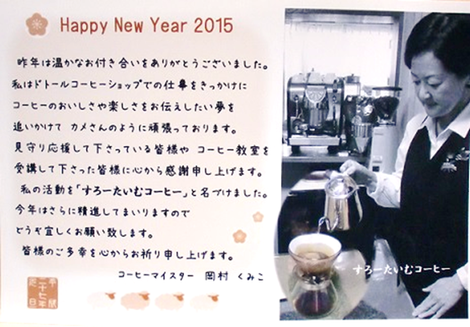 Happy New Year 2015
昨年は温かなお付き合いをありがとうございました。
私はドトールコーヒーショップでの仕事をきっかけに
コーヒーのおいしさや楽しさをお伝えしたい夢を
追いかけて カメさんのように頑張っております。
見守り応援して下さっている皆様や コーヒー教室を
受講して下さった皆様に心から感謝申し上げます。
私の活動を「すろーたいむコーヒー」と名づけました。
今年はさらに精進してまいりますので
どうぞ宜しくお願い致します。
皆様のご多幸を心からお祈り申し上げます。
コーヒーマイスター 岡村 くみこ
すろーたいむコーヒー